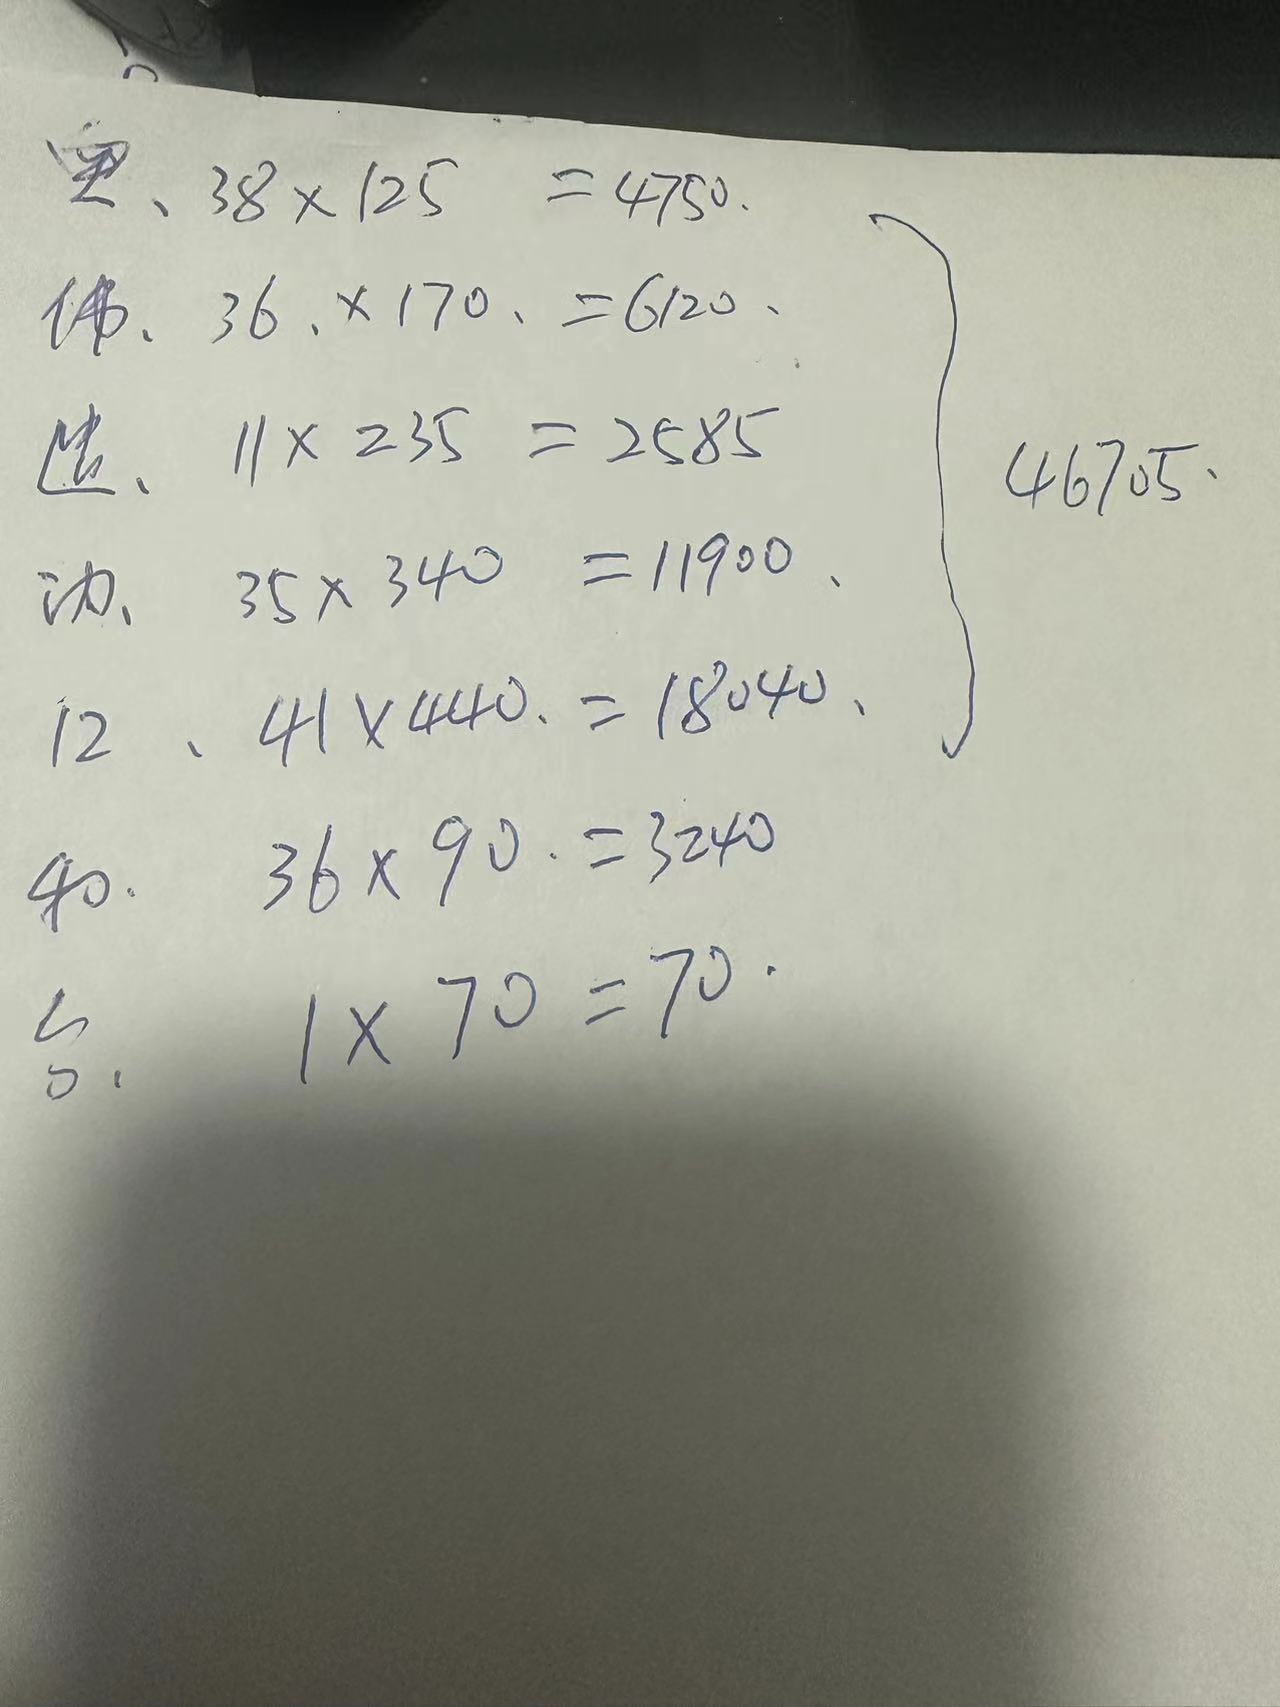 、38×125 =4750.
佛、36.×170、=6120、
莲、11×235=2585
功、35×340 =11900、
12、41×440.=18040、
和.36×90.=3240
台、1×70=70.
46705.